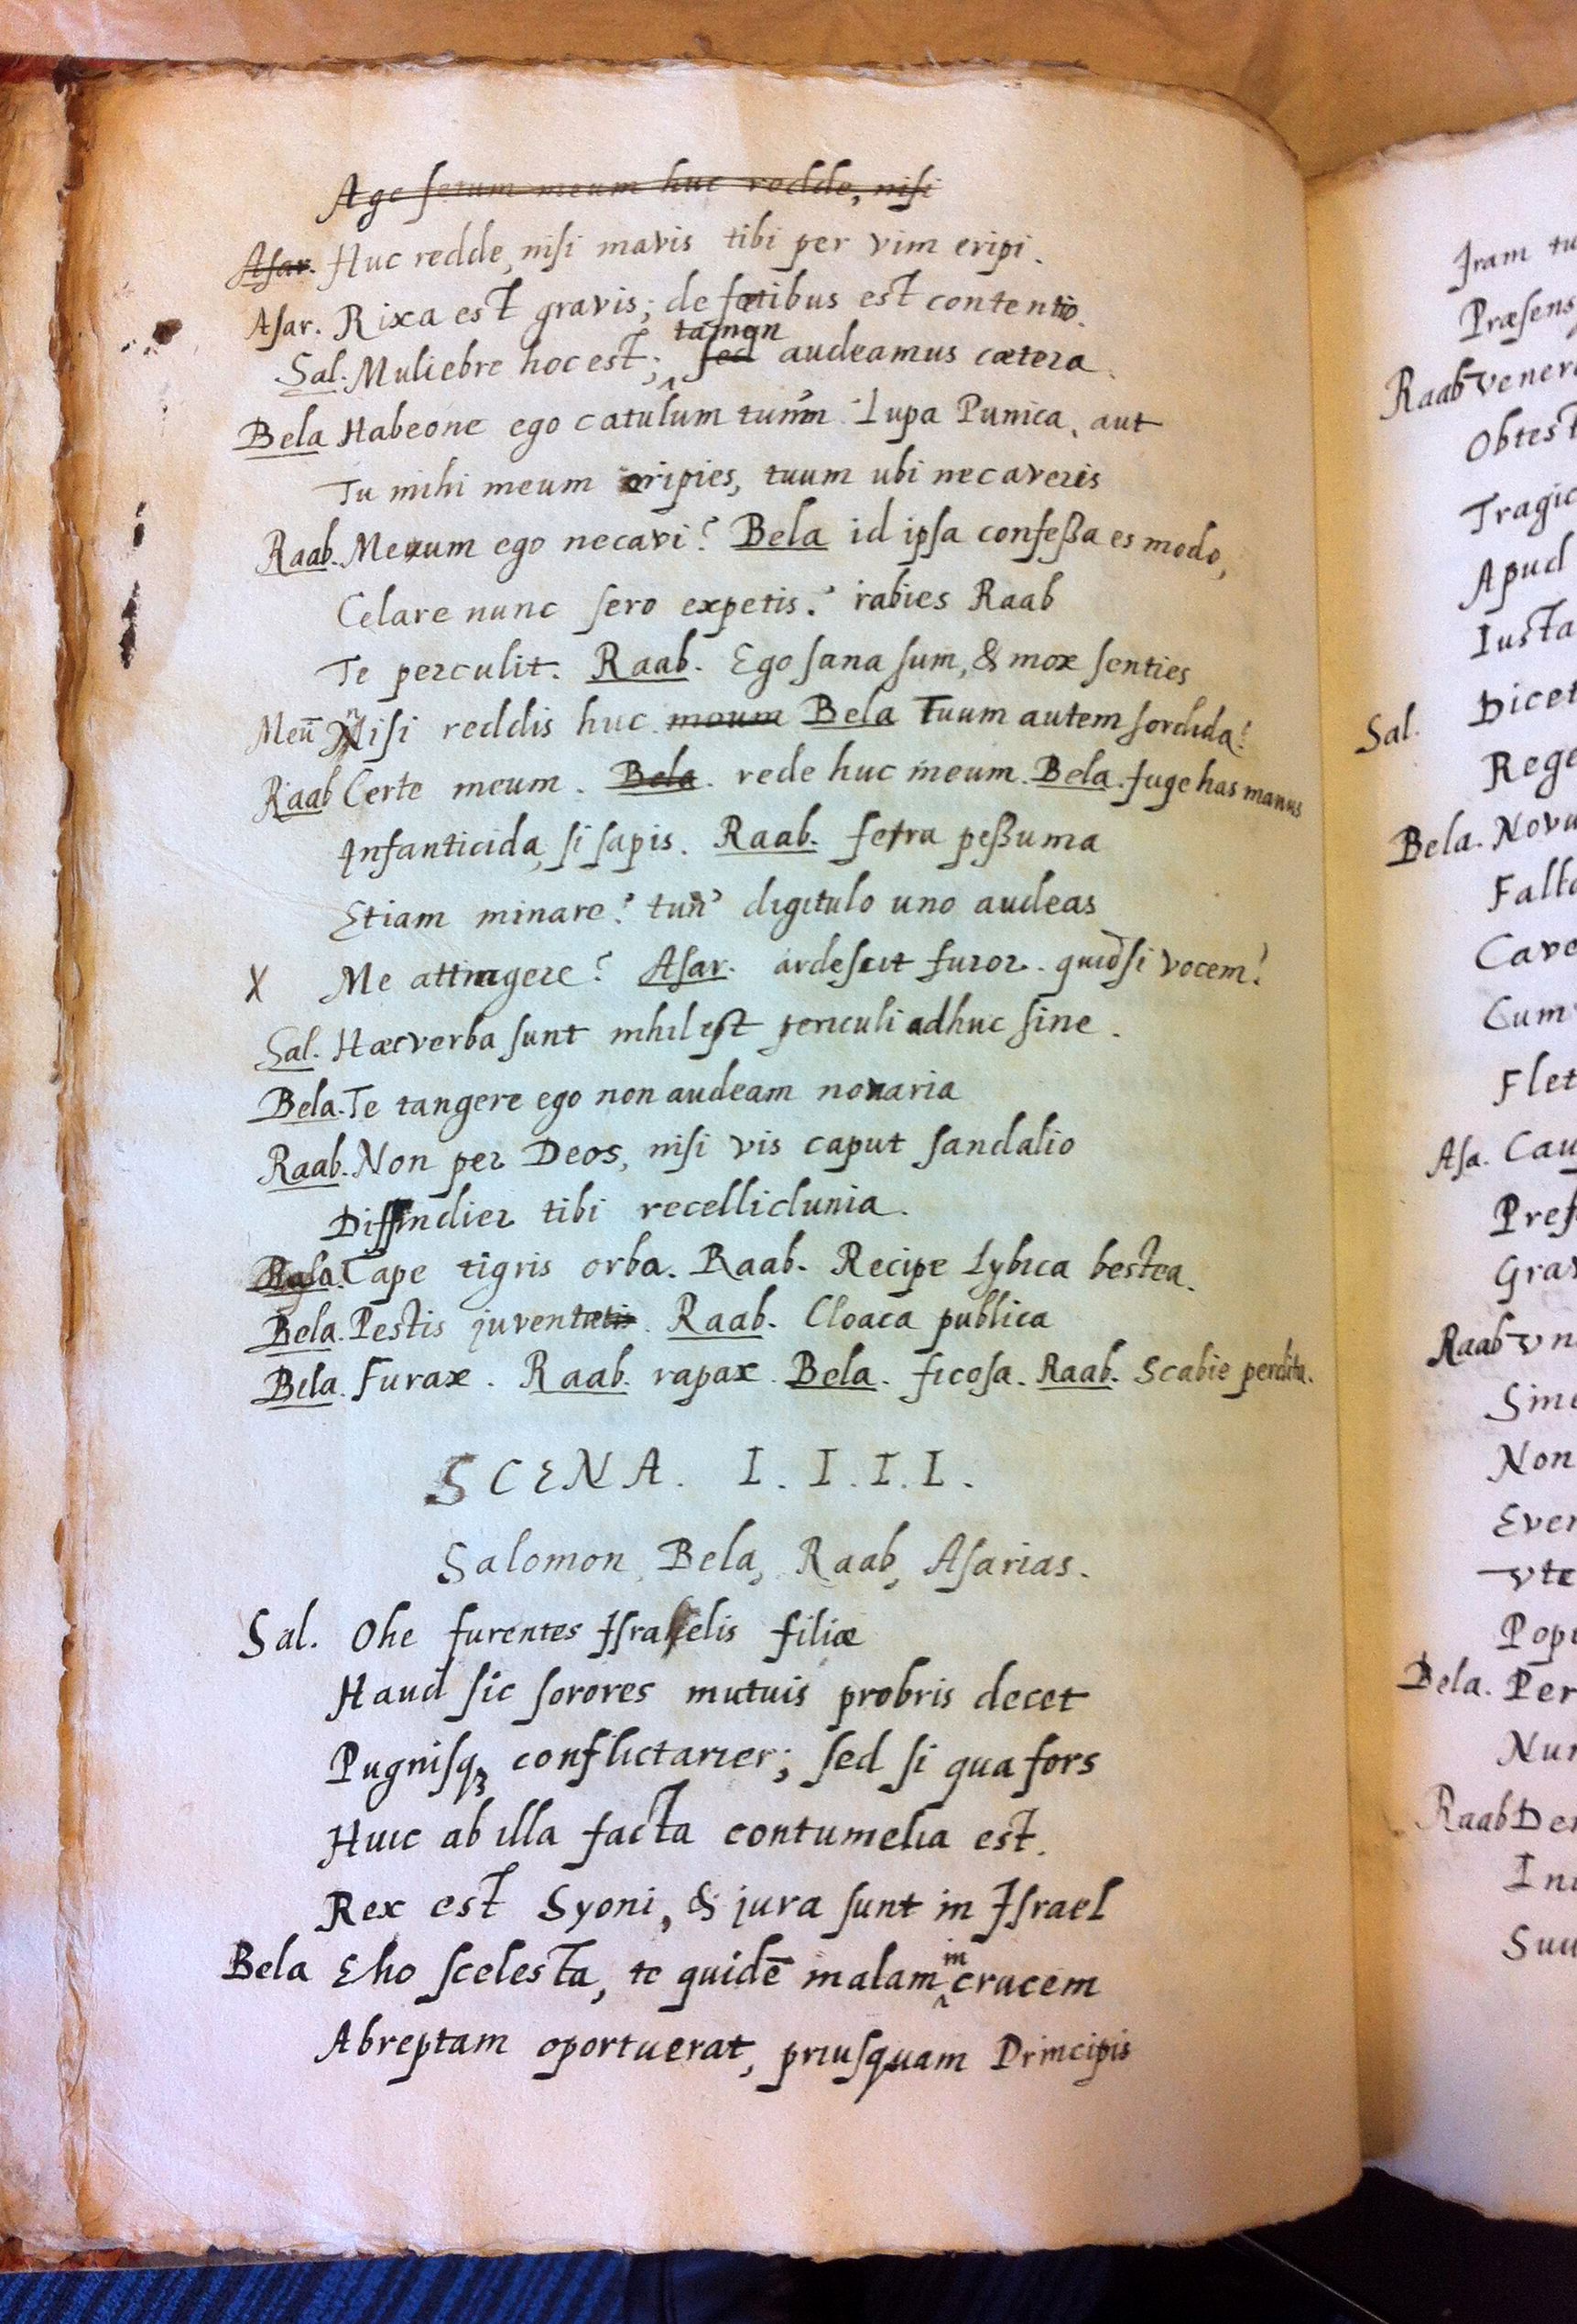 Age fetum meum huc redde, nisi
Asar. Huc redde, nisi mavis tibi per vim eripi.
Asar. Rixa est gravis; de fœtibus est contentio.
tamen
Sal. Muliebre hoc est; sed audeamus cætera.
Bela Habeone ego catulum tuum Lupa Punica, aut
Tu mihi meum eripies, tuum ubi necaveris
Raab. Meum ego necavi? Bela id ipsa confeßa es modo,
Celare nunc sero expetis? rabies Raab
Te perculit. Raab. Ego sana sum, & mox senties
Meū Nisi reddis huc meum Bela Tuum autem sordida?
Raab Certe meum. Bela. rede huc meum. Bela. fuge has manus
Infanticida, si sapis. Raab. peßuma
Etiam minare? tun' digitulo uno audeas
X Me attingere? Asar. ardescit furor. quid si vocem?
Sal. Hæc verba sunt nihil est periculi adhuc sine.
Bela. Te tangere ego non audeam nonaria
Raab. Non per Deos, nisi vis caput sandalio
Diffindier tibi recelliclunia.
Cape tigris orba. Raab. Recipe Lybica bestea.
Bela. Pestis juventutis. Raab. Cloaca publica
Bela. Furax. Raab. rapax. Bela. ficosa. Raab. Scabie perdita.
SCENA. I. I. I. I.
Salomon, Bela, Raab, Asarias.
Sal. Ohe furentes Israelis filiæ
Haud sic sorores mutuis probris decet
Pugnisq; conflictarier; sed si qua fors
Huic ab illa facta contumelia est.
Rex est Syoni, & jura sunt in Israel
in
Bela Eho scelesta, te quidē malam crucem
Abreptam oportuerat, priusquam Principis
Iram tu
Præsens
Raab
Obtest
Tragic
Apud
Iusta
Sal. Dicet
Rege
Bela. Novu
Falla
Cave
Cum
Flet
Asa. Cau
Pref
Grav
Raab Vn
Sim
Non
Ever
Vte
Popu
Bela. Per
Nun
Raab De
In
Suu